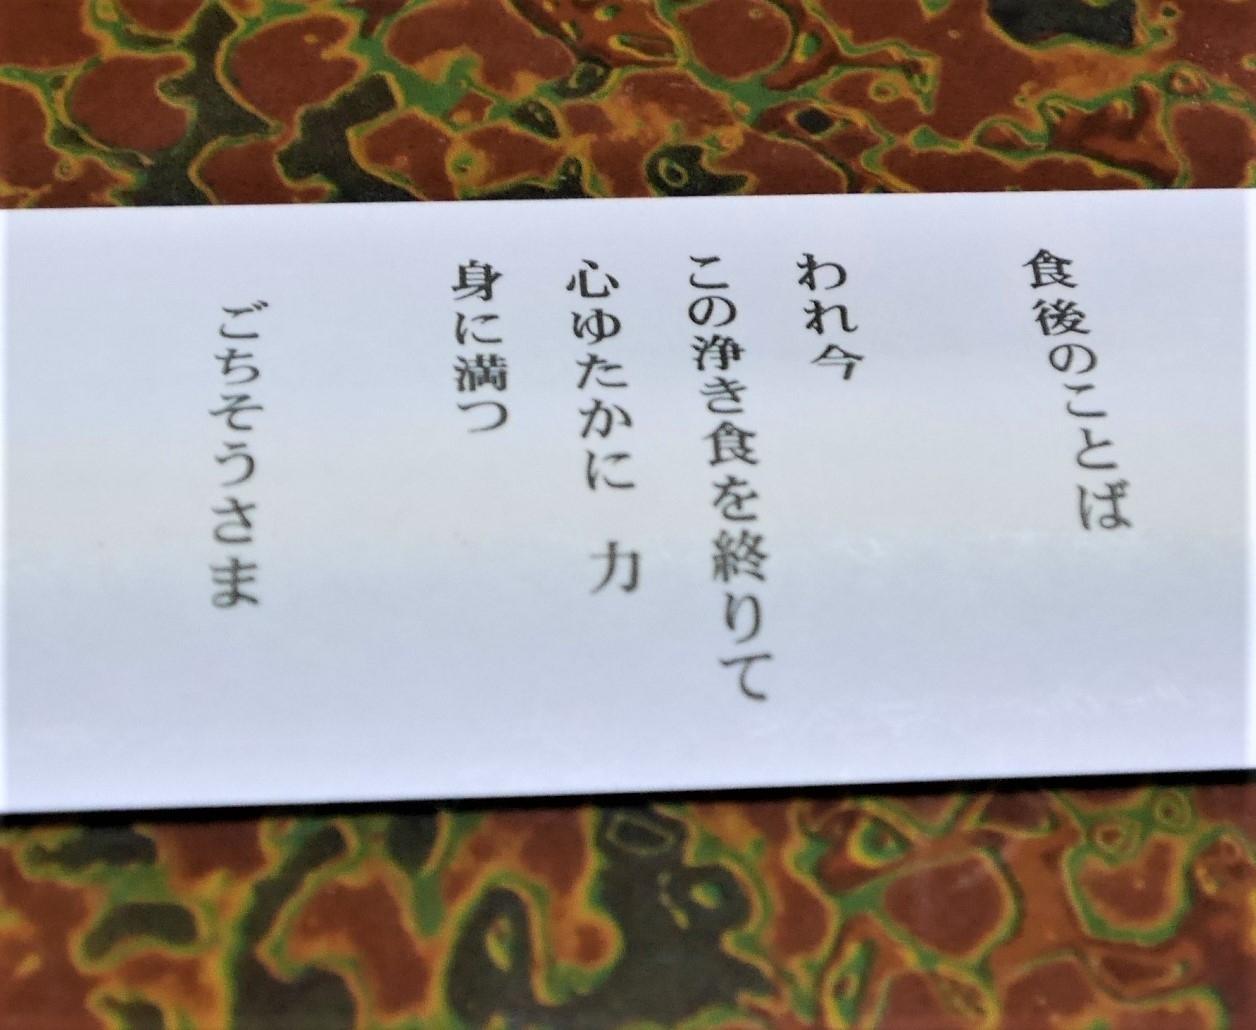 食後のことば
われ今
この浄き食を終りて
心ゆたかに　力
身に満つ
ごちそうさま